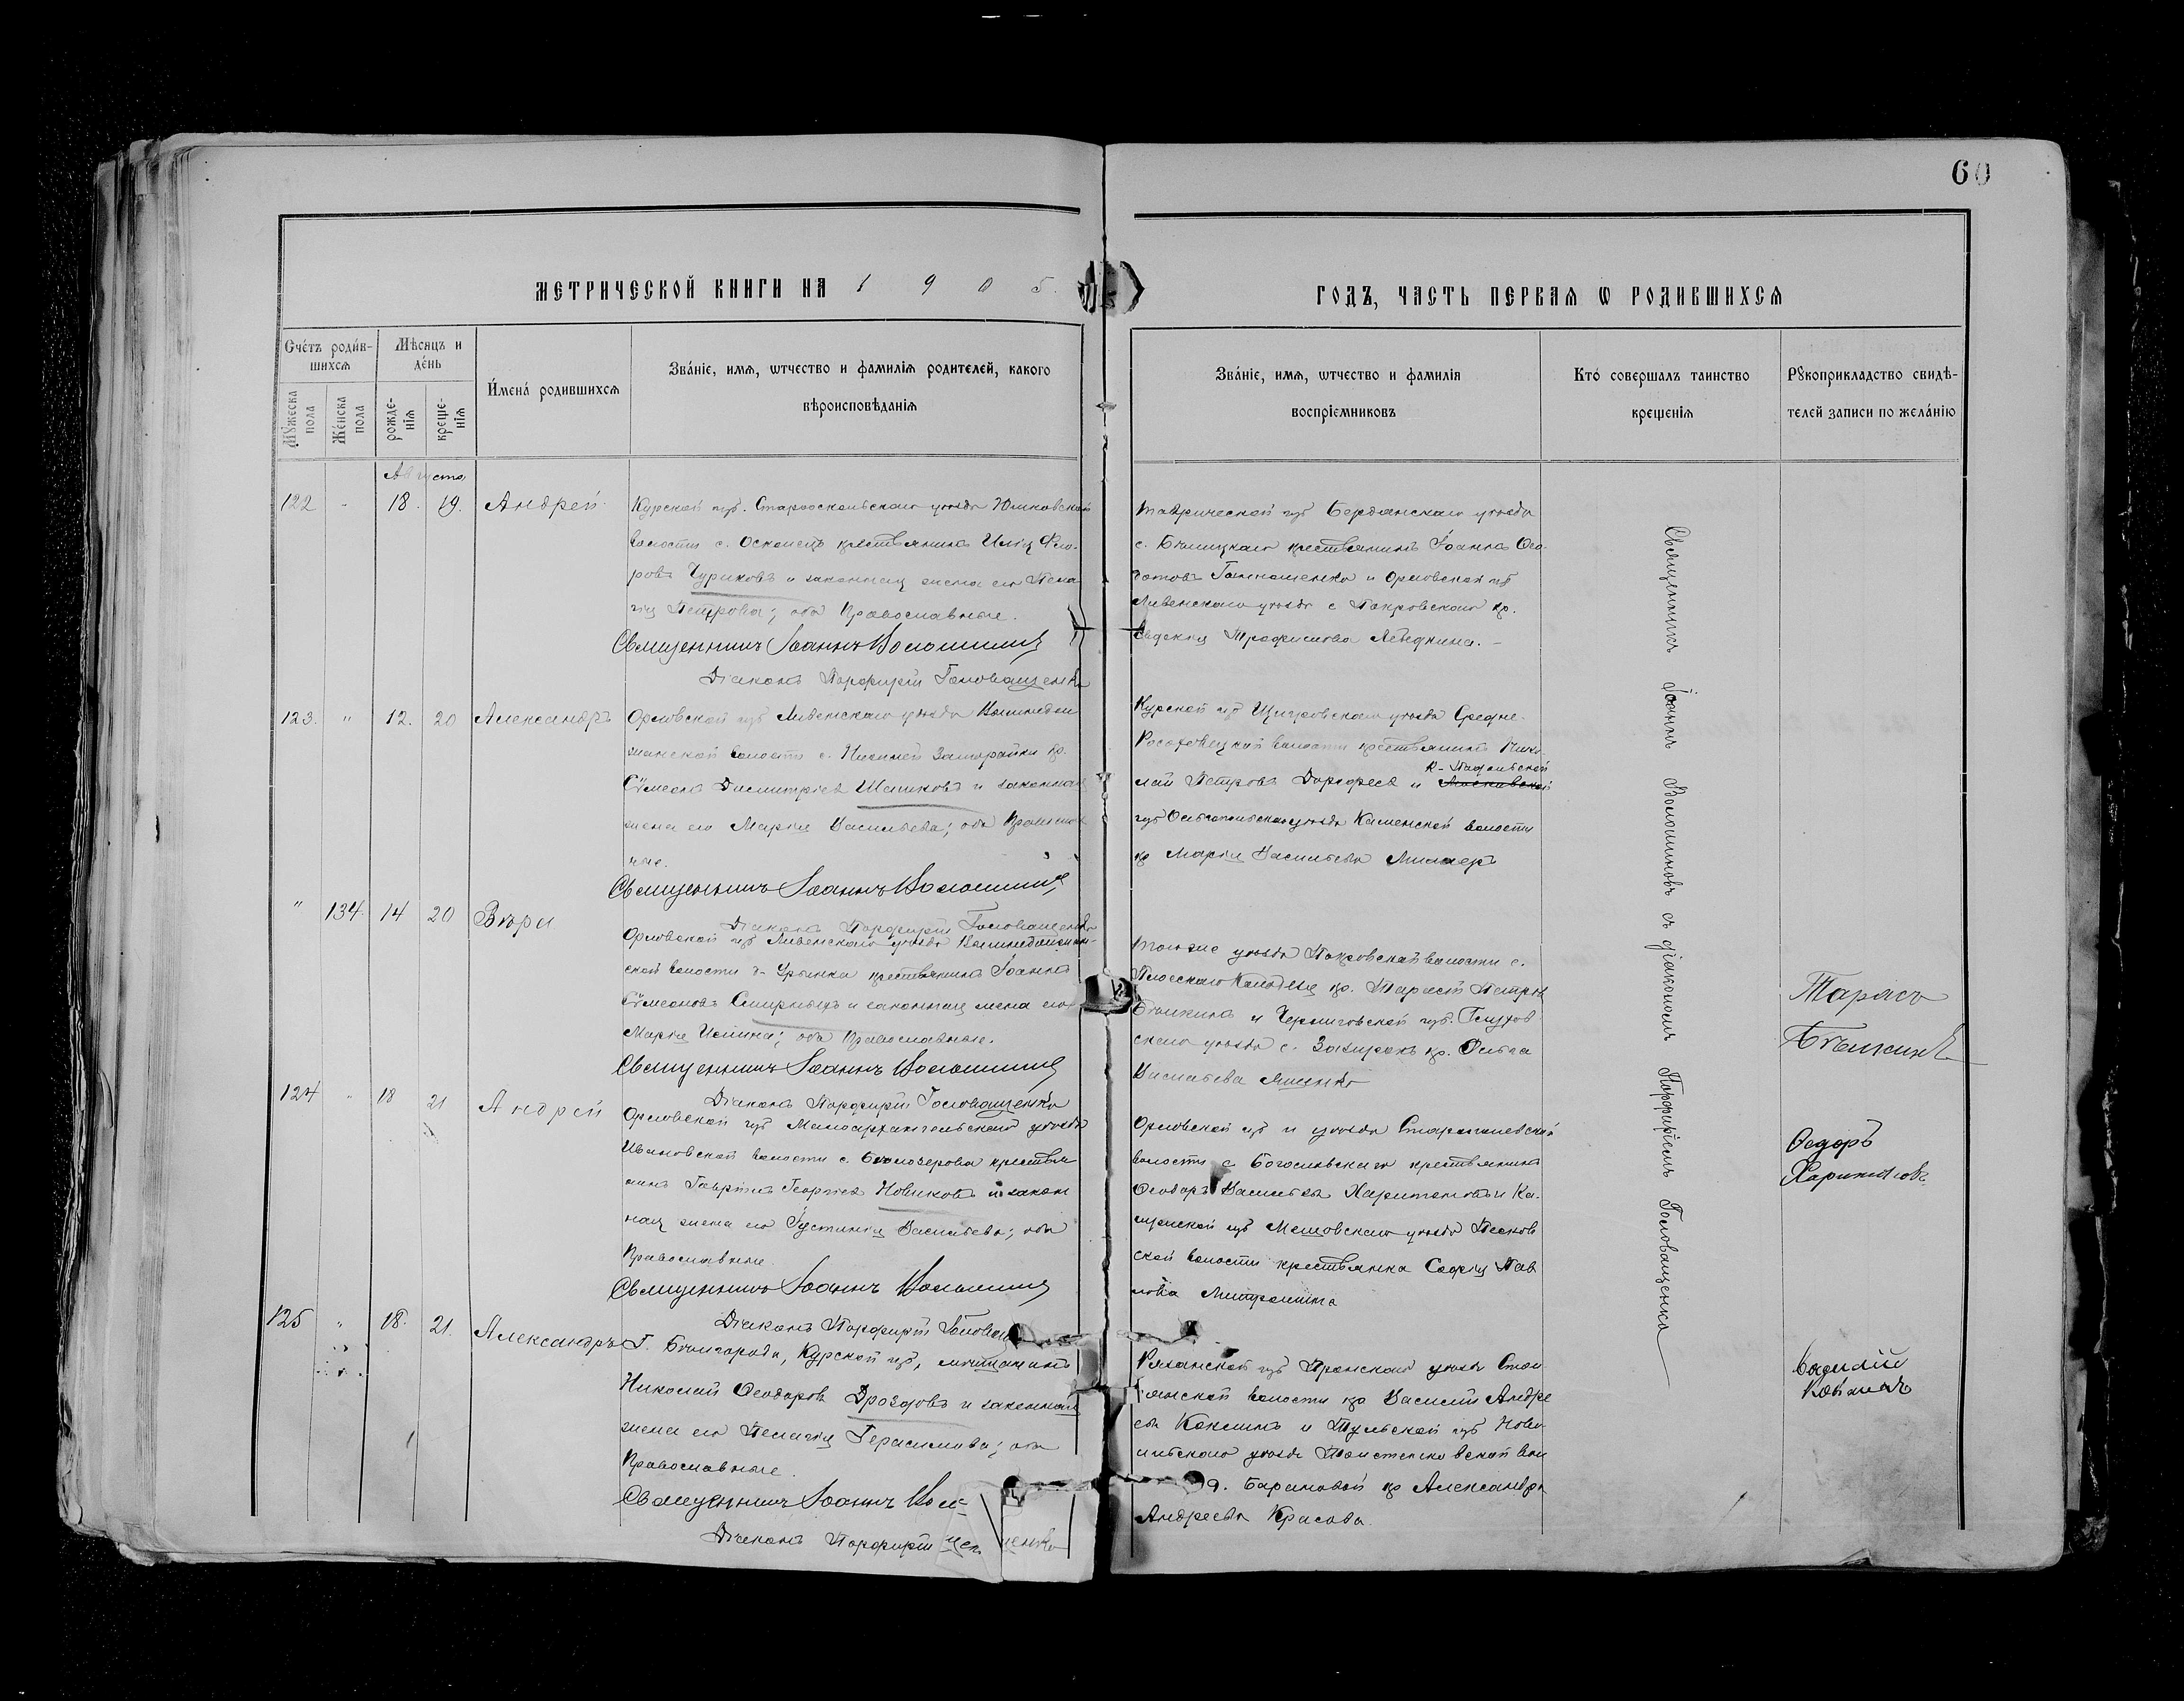 60
МЕТРИЧЕСКОЙ КНИГИ НА 1905
ГОДЪ, ЧАСТЬ ПЕРВАЯ Ѡ РОДИВШИХСЯ
Счéтъ роди́в-
шихся
Мѣсяцъ и
де́нь
Мꙋжеска
пола
Же́нска
пола
рожде-
нїя
креще-
нїя
И́мена́ родившихся
Зва́нїе, имя, ѡтчество и фамилїя родителей, какого
вѣроисповѣданїя
Зва́нїе, имя, ѡтчество и фамилїя
воспрїемниковъ
Кто́ совершалъ таинство
крещенїя
Рꙋкоприкладство свидѣ-
телей записи по жела́нїю
Августа
122 - 18. 19. Андрей
Курской губ. Старооскольскаго уѣзда
волости с. Осконецъ крестьянина Илія Фео-
ровъ Чуриковъ и законная жена его Пела
гія Петрова; оба Православные.
Священникъ Іоаннъ Волошинов
Діаконъ Порфирій Головащенко
Таврической губ Бердянскаго уѣзда
с. крестьянинъ Іоаннъ
и Орловской губ
Ливенскаго уѣзда с Покровскаго кр.
Евдокия Трофимова
123. " 12. 20 Александръ
Орловской губ Ливенскаго уѣзда
волости с. Нижней кр.
Сѵмеонъ Димитріев и законная
жена его Марія Васильева; оба Православ
ные.
Священникъ Іоаннъ Волошинов
Діаконъ Порфирій Головащенко
Курской губ Щигровскаго уѣзда Средне-
волости крестьянинъ Нико-
К-Подольской
лай Петровъ Дорофеев и Московской
губ Ольгопольскаго уѣзда Каменской волости
кр Марія Васильева
" 134. 14 20 Вѣра
Орловской губ Ливенскаго уѣзда
ской волости д- крестьянина Іоаннъ
Сѵмеоновъ Смирныхъ и законная жена его
Марія Ильина; оба Православные.
Священникъ Іоаннъ Волошинов
Діаконъ Порфирій Головащенко
того же уѣзда Покровской волости с.
кр. Тарасій Петров
Бѣлкинъ и Черниговской губ. Глухов
скаго уѣзда с. кр. Ольга
Игнатьева
Тарасъ
Бѣлкинъ
124 " 18 21 Андрей
Орловской губ Малоархангельскаго уѣзда
Ивановской волости с. крестьян
инъ Гавріилъ Георгіев Новиковъ и закон
ная жена его Іустинія Васильева; оба
Православные
Священникъ Іоаннъ Волошинов
Діаконъ Порфирій Головащ
Орловской губ и уѣзда
волости с Богословскаго крестьянинъ
Ѳеодоръ Васильев Харитоновъ и Ка-
лужской губ Мещовскаго уѣзда Песков
ской волости крестьянка Софія Пав
лова Митрохина
Ѳедоръ
Харитонов
125 " 18. 21. Александръ
Г. Бѣлгорода, Курской губ, мѣщанинъ
Николай Ѳеодоровъ Дроздовъ и законная
жена его Пелагія Герасимова; оба
Православные.
Священникъ Іоаннъ Вол-
Діаконъ Порфирій
Рязанской губ Пронскаго уѣзда
волости кр Василій Андре
евъ Кокинъ и Тульской губ Ново-
сильскаго уѣзда вол
д. Барановой кр Александра
Андреева Красова.
Василій
Священникъ Іоаннъ Волошиновъ съ діакономъ Порфиріемъ Головащенко